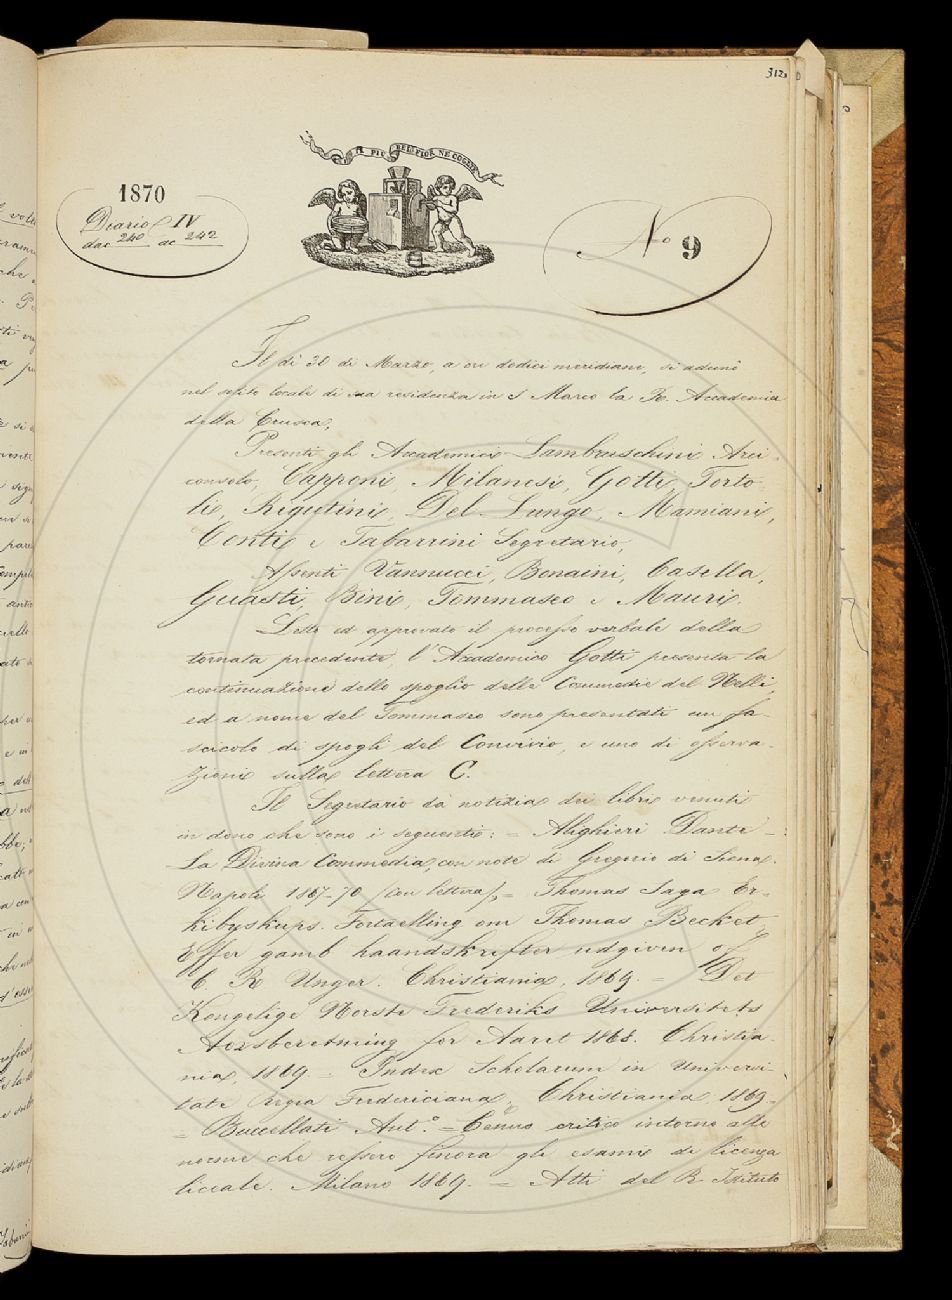 312.
IL PIÙ BEL FIOR NE COGLIE
1870
Diario IV
dac 240 ac 242
No 9
Il dì 30 di Marzo, a ore dodici meridiane, si adunò
nel solito locale di sua residenza in S Marco la R. Accademia
della Crusca,
Presenti gli Accademici Lambruschini Arci-
consolo, Capponi, Milanesi, Gotti, Torto
li, Rigutini, Del Lungo, Mamiani,
Conti e Tabarrini Segretario,
Assenti Vannucci, Bonaini, Casella,
Guasti, Bini, Tommaseo e Mauri.
Letto ed approvato il processo verbale della
tornata precedente, l'Accademico Gotti presenta la
continuazione dello spoglio delle Commedie del Nelli,
ed a nome del Tommaseo sono presentati un fa-
scicolo di spogli del Convivio, e uno di osserva-
zioni sulla lettera C.
Il Segretario dà notizia dei libri venuti
in dono che sono i seguenti: = Alighieri Dante -
La Divina Commedia, con note di Gregorio di Siena.
Napoli 1867-70 (con lettera), = Thomas Saga Er-
kibyskups. Fortaelling om Thomas Becket
Effer gamb haandskrifter udgiven af
C. R Unger. Christiania, 1869. = Det
Kongelige Norske Frederiks Universitets
Aarsberetning for Aaret 1868. Christia-
nia, 1869. - Index Scholarum in Universi-
tate Regia Fredericiana, Christiania, 1869-
= Buccellati Ant.o = Cenno critico intorno alle
norme che ressero finora gli esami di licenza
liceale. Milano 1869. = Atti del R. Istituto